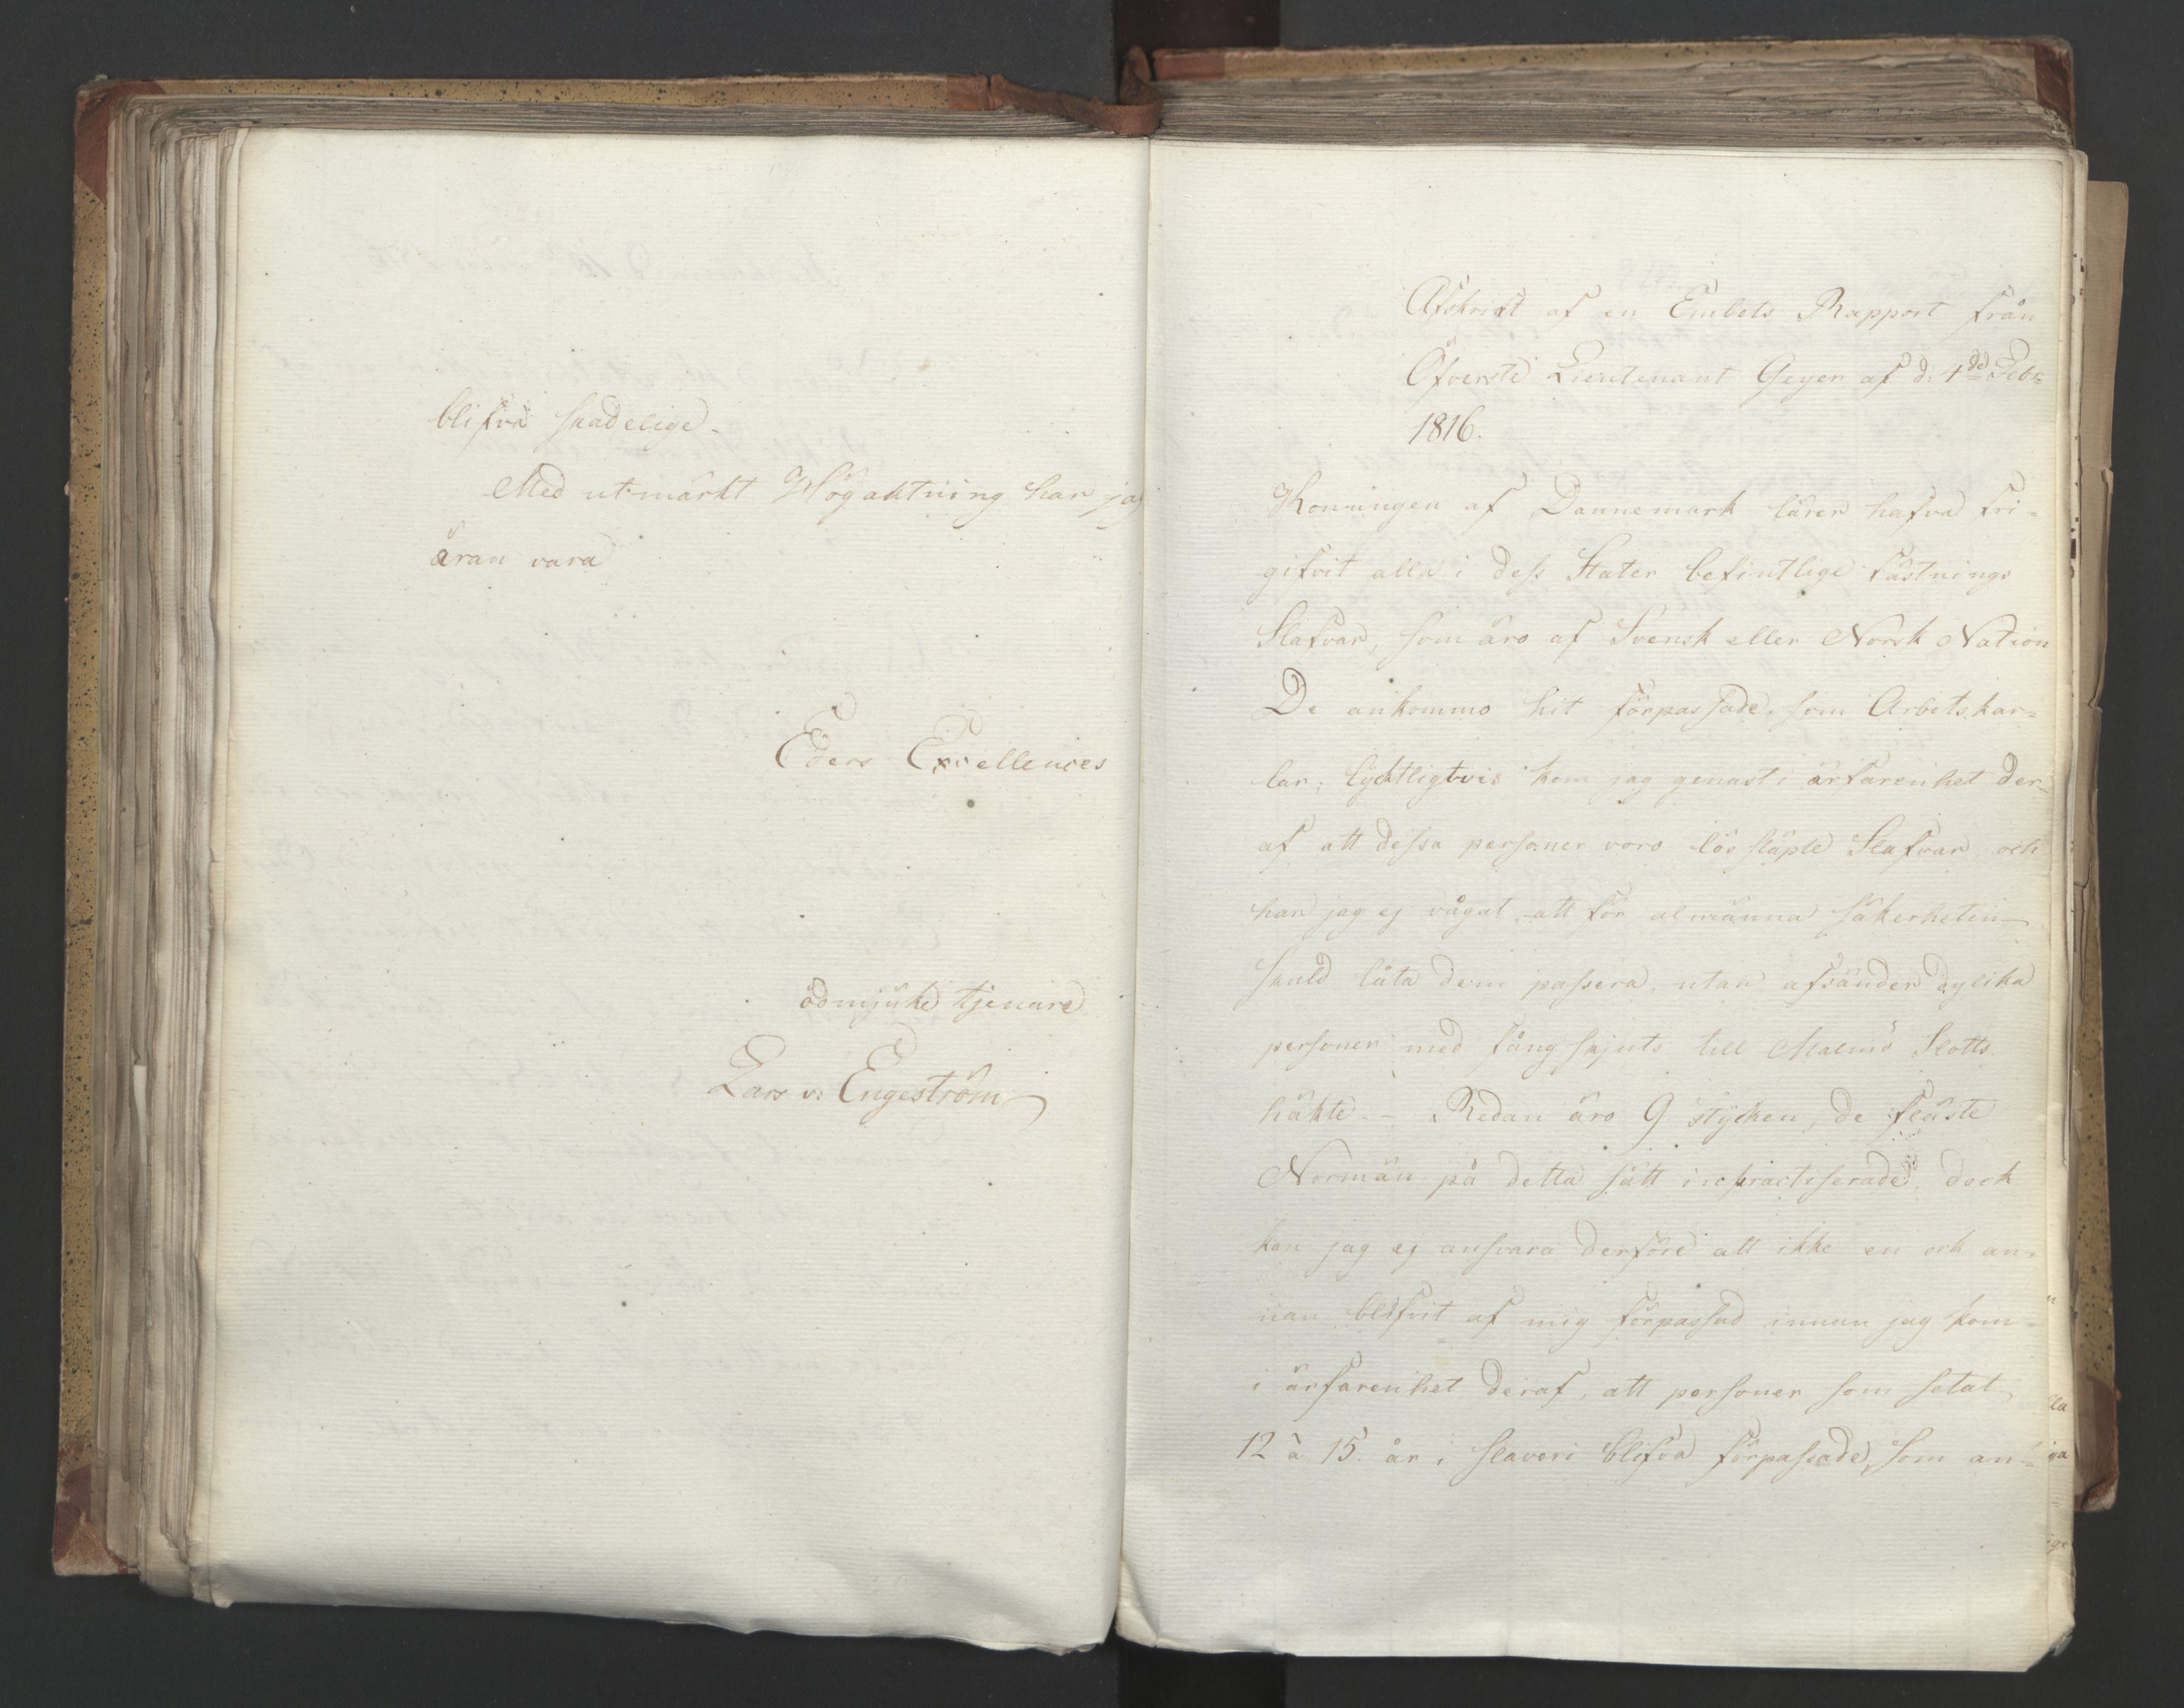 blifva skadelige.
Med utmärkt Högaktning har jag
äran vara
Eders Excellences
ödmjuke tjenare
Lars v: Engeström
Afskrift af en Embets Rapport från
Öfverste Lieutenant Geyer af d: 4de Febr
1816.
Konungen af Dannemark lärer hafva fri=
gifvit alla i dess Stater befintlige fästnings
Slafvar, som äro af Svensk eller Norsk Nation
De ankommo hit förpassade, som Arbetskar=
lar; lycktligtvis kom jag genast i ärfarenhet der=
af att dessa personer voro lössläpte Slafvar, och
har jag ej vågat, att för almänna säkerheten
skuld låta dem passera, utan afsänder dylika
personer med fångskjuts till Malmö Slotts
häkte. - Redan äro 9 stycken, de fläste
Normän på detta sätt inpractiserade, dock
kan jag ej ansvara derföre att ikke en och an=
nan blifvit af mig förpassad innan jag kom
i ärfarenhet deraf, att personer som setat
12 à 15. år i slaveri blifva förpassade, som an=